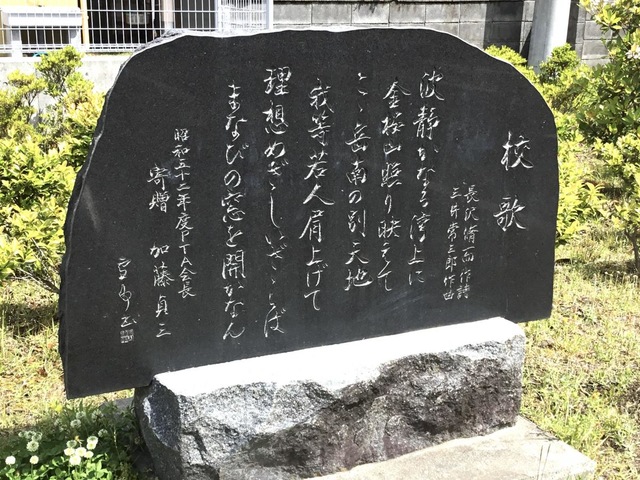 校歌
長沢備画作詩
三井常三郎作曲
波静かなる浮上に
金桜山照り映えて
こゝ岳南の別天地
我等若人肩上げて
理想めざしいざゝらば
まなびの窓を開かなん
昭和五十二年度PTA会長
寄贈 加藤貞三